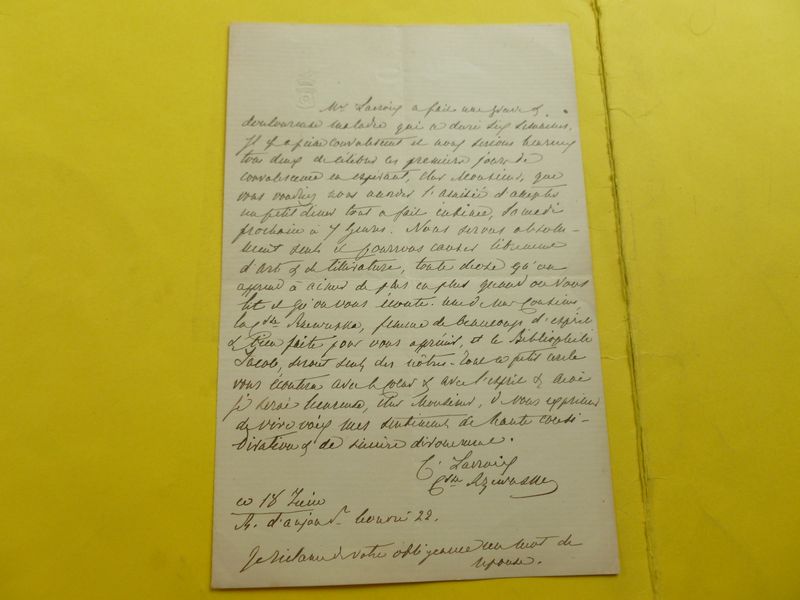 Mr Lacroix a fait une grave &
douloureuse maladie qui a duré six semaines.
Il est à peine convalescent et nous serions heureux
tous deux de célébrer ces premiers jours de
convalescence en espérant, cher Monsieur, que
vous voudrez nous accorder l'amitié d'accepter
un petit dîner tout à fait intime, Samedi
prochain à 7 heures. Nous serons absolu-
ment seuls et pourrons causer librement
d'art & de littérature, toute chose qu'on
apprend à aimer de plus en plus quand on vous
lit et qu'on vous écoute. une de mes Cousines,
la Csse Rzewuska, femme de beaucoup d'esprit
& bien faite pour vous apprécier, et le Bibliophile
Jacob, seront seuls des nôtres. Tout ce petit cercle
vous écoutera avec le cœur & avec l'esprit & moi
je serai heureuse, cher Monsieur, de vous exprimer
de vive voix mes sentiments de haute consi-
dération & de sincère dévouement.
C. Lacroix
Csse Rzewuska
ce 18 Juin
R. d'anjou St honoré 22.
Je réclame de votre obligeance un mot de
réponse.